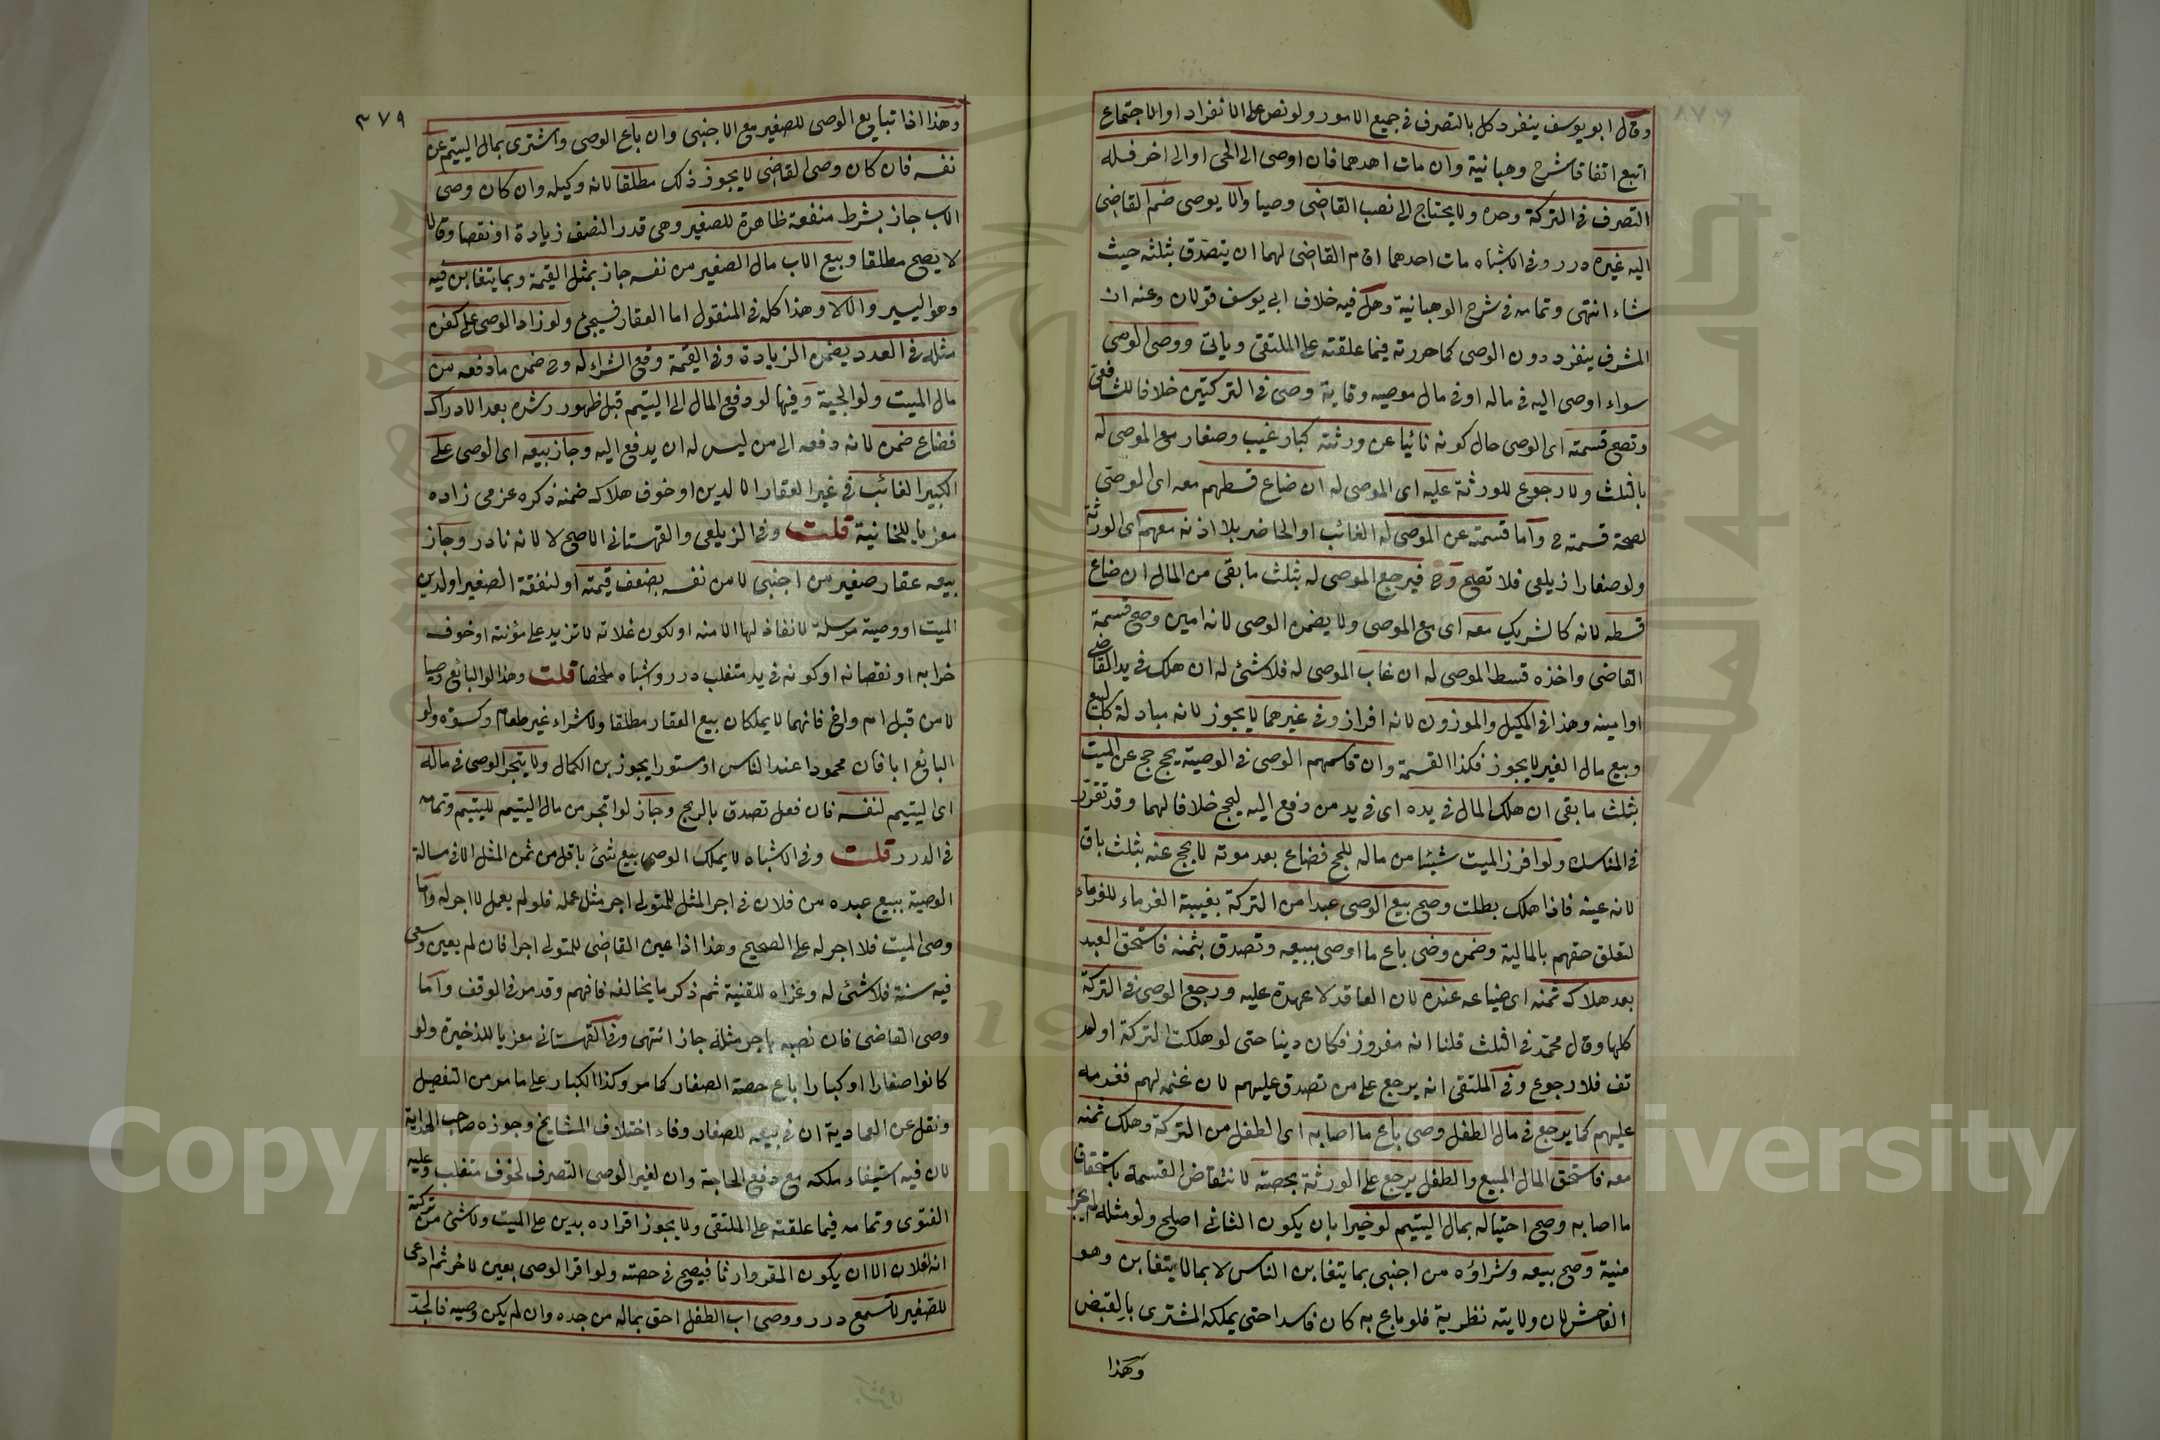 وقال ابو يوسف ينفرد كل بالتصرف في جميع الامور ولو نص على الانفراد او الاجتماع
اتبع اتفاقا شرح وهبانية وان مات احدهما فان اوصى الى الحي او الى اخر فله
التصرف في التركة وحده ولا يحتاج الى نصب القاضي وصيا والا يوصى ضم القاضي
اليه غيره درر وفي الاشباه مات احدهما اقام القاضي لهما ان يتصدق بثلثه حيث
شاء انتهى وتمامه في شرح الوهبانية وهل فيه خلاف ابي يوسف قولان وعنه ان
المشرف ينفرد دون الوصي كما حررته فيما علقته على الملتقى وياتي ووصى الوصي
سواء اوصى اليه في ماله او في مال موصيه وقاية وصى في التركتين خلافا للشافعي
وتصح قسمته اى الوصي حال كونه نائبا عن ورثته كبار غيب وصغار مع الموصى له
بالثلث ولا رجوع للورثة عليه اى الموصى له ان ضاع قسطهم معه اى الوصى
لصحة قسمته ح واما قسمته عن الموصى له الغائب او الحاضر بلا اذنه معهم اى الورثة
ولو صغارا زيلعى فلا تصح وح فيرجع الموصى له بثلث ما بقى من المال ان ضاع
قسطه لانه كالشريك معه اى مع الموصى ولا يضمن الوصى لانه امين وصح قسمة
القاضي واخذه قسط الموصى له ان غاب الموصى له فلا شئ له ان هلك في يد القاضي
او امينه وهذا في المكيل والموزون لانه افراز وفي غيرهما لا يجوز لانه مبادلة كالبيع
وبيع مال الغير لا يجوز فكذا القسمة وان قاسمهم الوصى في الوصية بحج حج عن الميت
بثلث ما بقى ان هلك المال في يده اى في يد من دفع اليه ليحج خلافا لهما وقد تقرر
في المناسك ولو افرز الميت شيئا من ماله للحج فضاع بعد موته لا يحج عنه بثلث باق
لانه عينه فاذا هلك بطلت وصح بيع الوصى عبدا من التركة بغيبة الغرماء للغرماء
لتعلق حقهم بالمالية وضمن وصى باع ما اوصى ببيعه وتصدق بثمنه فاستحق العبد
بعد هلاك ثمنه اى ضياعه عنده لان العاقد لا عهدة عليه ورجع الوصى في التركة
كلها وقال محمد في الثلث قلنا انه مغرور فكان دينا حتى لو هلكت التركة او لم
تف فلا رجوع وفي الملتقى انه يرجع على من تصدق عليهم لان غنمه لهم فغرمه
عليهم كما يرجع في مال الطفل وصى باع ما اصابه اى الطفل من التركة وهلك ثمنه
معه فاستحق المال المبيع والطفل يرجع على الورثة بحصته لانتقاض القسمة باستحقاق
ما اصابه وصح احتياله بمال اليتيم لو خيرا بان يكون الثاني اصلح ولو مثله لم يجز
منية وصح بيعه وشراؤه من اجنبى بما يتغابن الناس لا بما لا يتغابن وهو
الفاحش لان ولايته نظرية فلو باع به كان فاسدا حتى يملكه المشترى بالقبض
وهذا
٣٧٩
وهذا اذا تبايع الوصى للصغير مع الاجنبى وان باع الوصى واشترى بمال اليتيم عن
نفسه فان كان وصى القاضي لا يجوز ذلك مطلقا لانه وكيله وان كان وصى
الاب جاز بشرط منفعة ظاهرة للصغير وهى قدر النصف زيادة او نقصا وقالا
لا يصح مطلقا وبيع الاب مال الصغير من نفسه جاز بمثل القيمة وبما يتغابن فيه
وهو اليسير والا لا وهذا كله في المنقول اما العقار فسيجئ ولو زاد الوصى على كفن
مثله في العدد يضمن الزيادة وفي القيمة وقع الشراء له وح ضمن ما دفعه من
مال الميت ولوالجية وفيها لو دفع المال الى اليتيم قبل ظهور رشده بعد الادراك
فضاع ضمن لانه دفعه الى من ليس له ان يدفع اليه وجاز بيعه اى الوصى على
الكبير الغائب في غير العقار الا لدين او خوف هلاكه ضمنه ذكره عزمى زاده
معزيا للخانية قلت وفي الزيلعى والقهستاني الاصح لا لانه نادر وجاز
بيعه عقار صغير من اجنبى لا من نفسه بضعف قيمته او لنفقة الصغير او لدين
الميت او وصية مرسلة لا نفاذ لها الا منه او لكون غلاته لا تزيد على مؤنته او خوف
خرابه او نقصانه او كونه في يد متغلب درر واشباه ملخصا قلت وهذا لو البائع وصيا
لا من قبل ام واخ فانهما لا يملكان بيع العقار مطلقا ولا شراء غير طعام وكسوة ولو
البائع ابا فان محمودا عند الناس او مستورا يجوز بن الكمال ولا يتجر الوصى في ماله
اى اليتيم لنفسه فان فعل تصدق بالربح وجاز لو اتجر من مال اليتيم لليتيم وتمامه
في الدرر قلت وفي الاشباه لا يملك الوصى بيع شئ باقل من ثمن المثل الا في مسالة
الوصية ببيع عبده من فلان في اجر المثل للمتولى اجر مثل عمله فلو لم يعمل لا اجر له واما
وصى الميت فلا اجر له على الصحيح وهذا اذا عين القاضي للمتولى اجرا فان لم يعين وسعى
فيه سنة فلا شئ له وعزاه للقنية ثم ذكر ما يخالفه فافهم وقد مر في الوقف واما
وصى القاضى فان نصبه باجر مثله جاز انتهى وفي القهستاني معزيا للذخيرة ولو
كانوا صغارا او كبارا باع حصة الصغار كما مر وكذا الكبار على ما مر من التفصيل
ونقل عن العمادية ان في بيعه للصغار وفاء اختلاف المشايخ وجوزه صاحب الهداية
لان فيه استيفاء ملكه مع دفع الحاجة وان لغير الوصى التصرف لخوف متغلب وعليه
الفتوى وتمامه فيما علقته على الملتقى ولا يجوز اقراره بدين على الميت ولا شئ من تركته
انه لفلان الا ان يكون المقر وارثا فيصح في حصته ولو اقر الوصى بعين لاخر ثم ادعى
للصغير لا تسمع درر ووصى اب الطفل احق بماله من جده وان لم يكن وصيه فالجد
Copyright © King Saud University